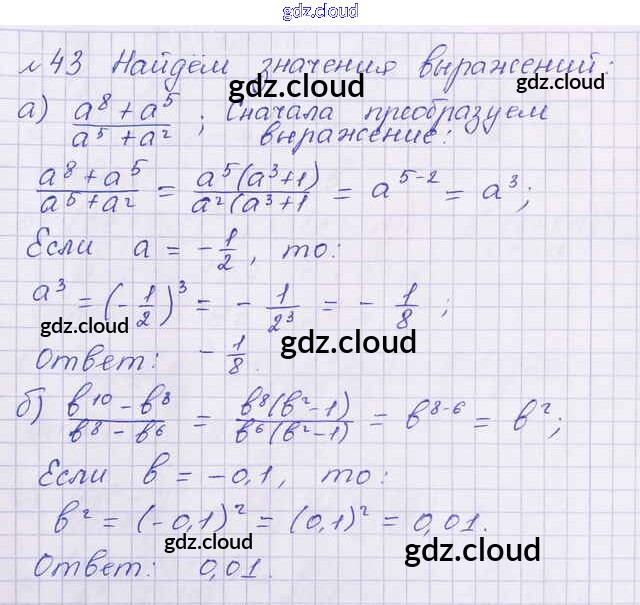 gdz.cloud
№ 43 Найдём значения выражений:
gdz.cloud
gdz.cloud
а) (a⁸ + a⁵)/(a⁵ + a²) ; Сначала преобразуем
выражение:
gdz.cloud
(a⁸ + a⁵)/(a⁵ + a²) = (a⁵(a³+1))/(a²(a³+1) = a⁵⁻² = a³;
gdz.cloud
Если a = -1/2, то:
a³ = (-1/2)³ = - 1/2³ = - 1/8 ;
gdz.cloud
gdz.cloud
Ответ: -1/8.
б) (в¹⁰ - в⁸)/(в⁸ - в⁶) = (в⁸(в²-1))/(в⁶(в²-1)) = в⁸⁻⁶ = в²;
Если в = -0,1, то:
в² = (-0,1)² = (0,1)² = 0,01.
gdz.cloud
gdz.cloud
Ответ: 0,01.